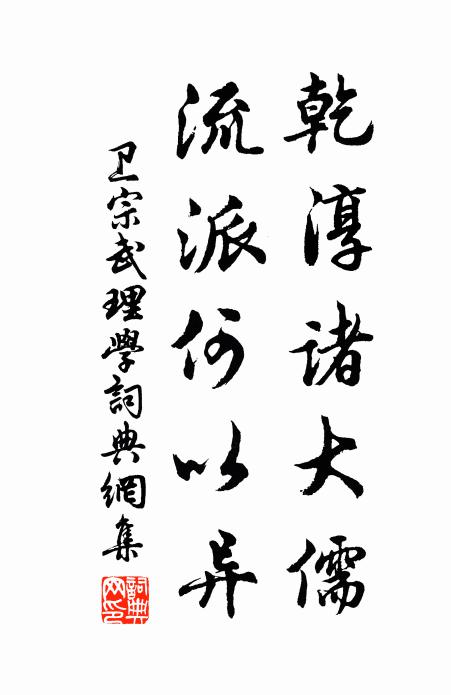 乾淳诸大儒
流派何以异
卫宗武理學詞典網集
詞典網印